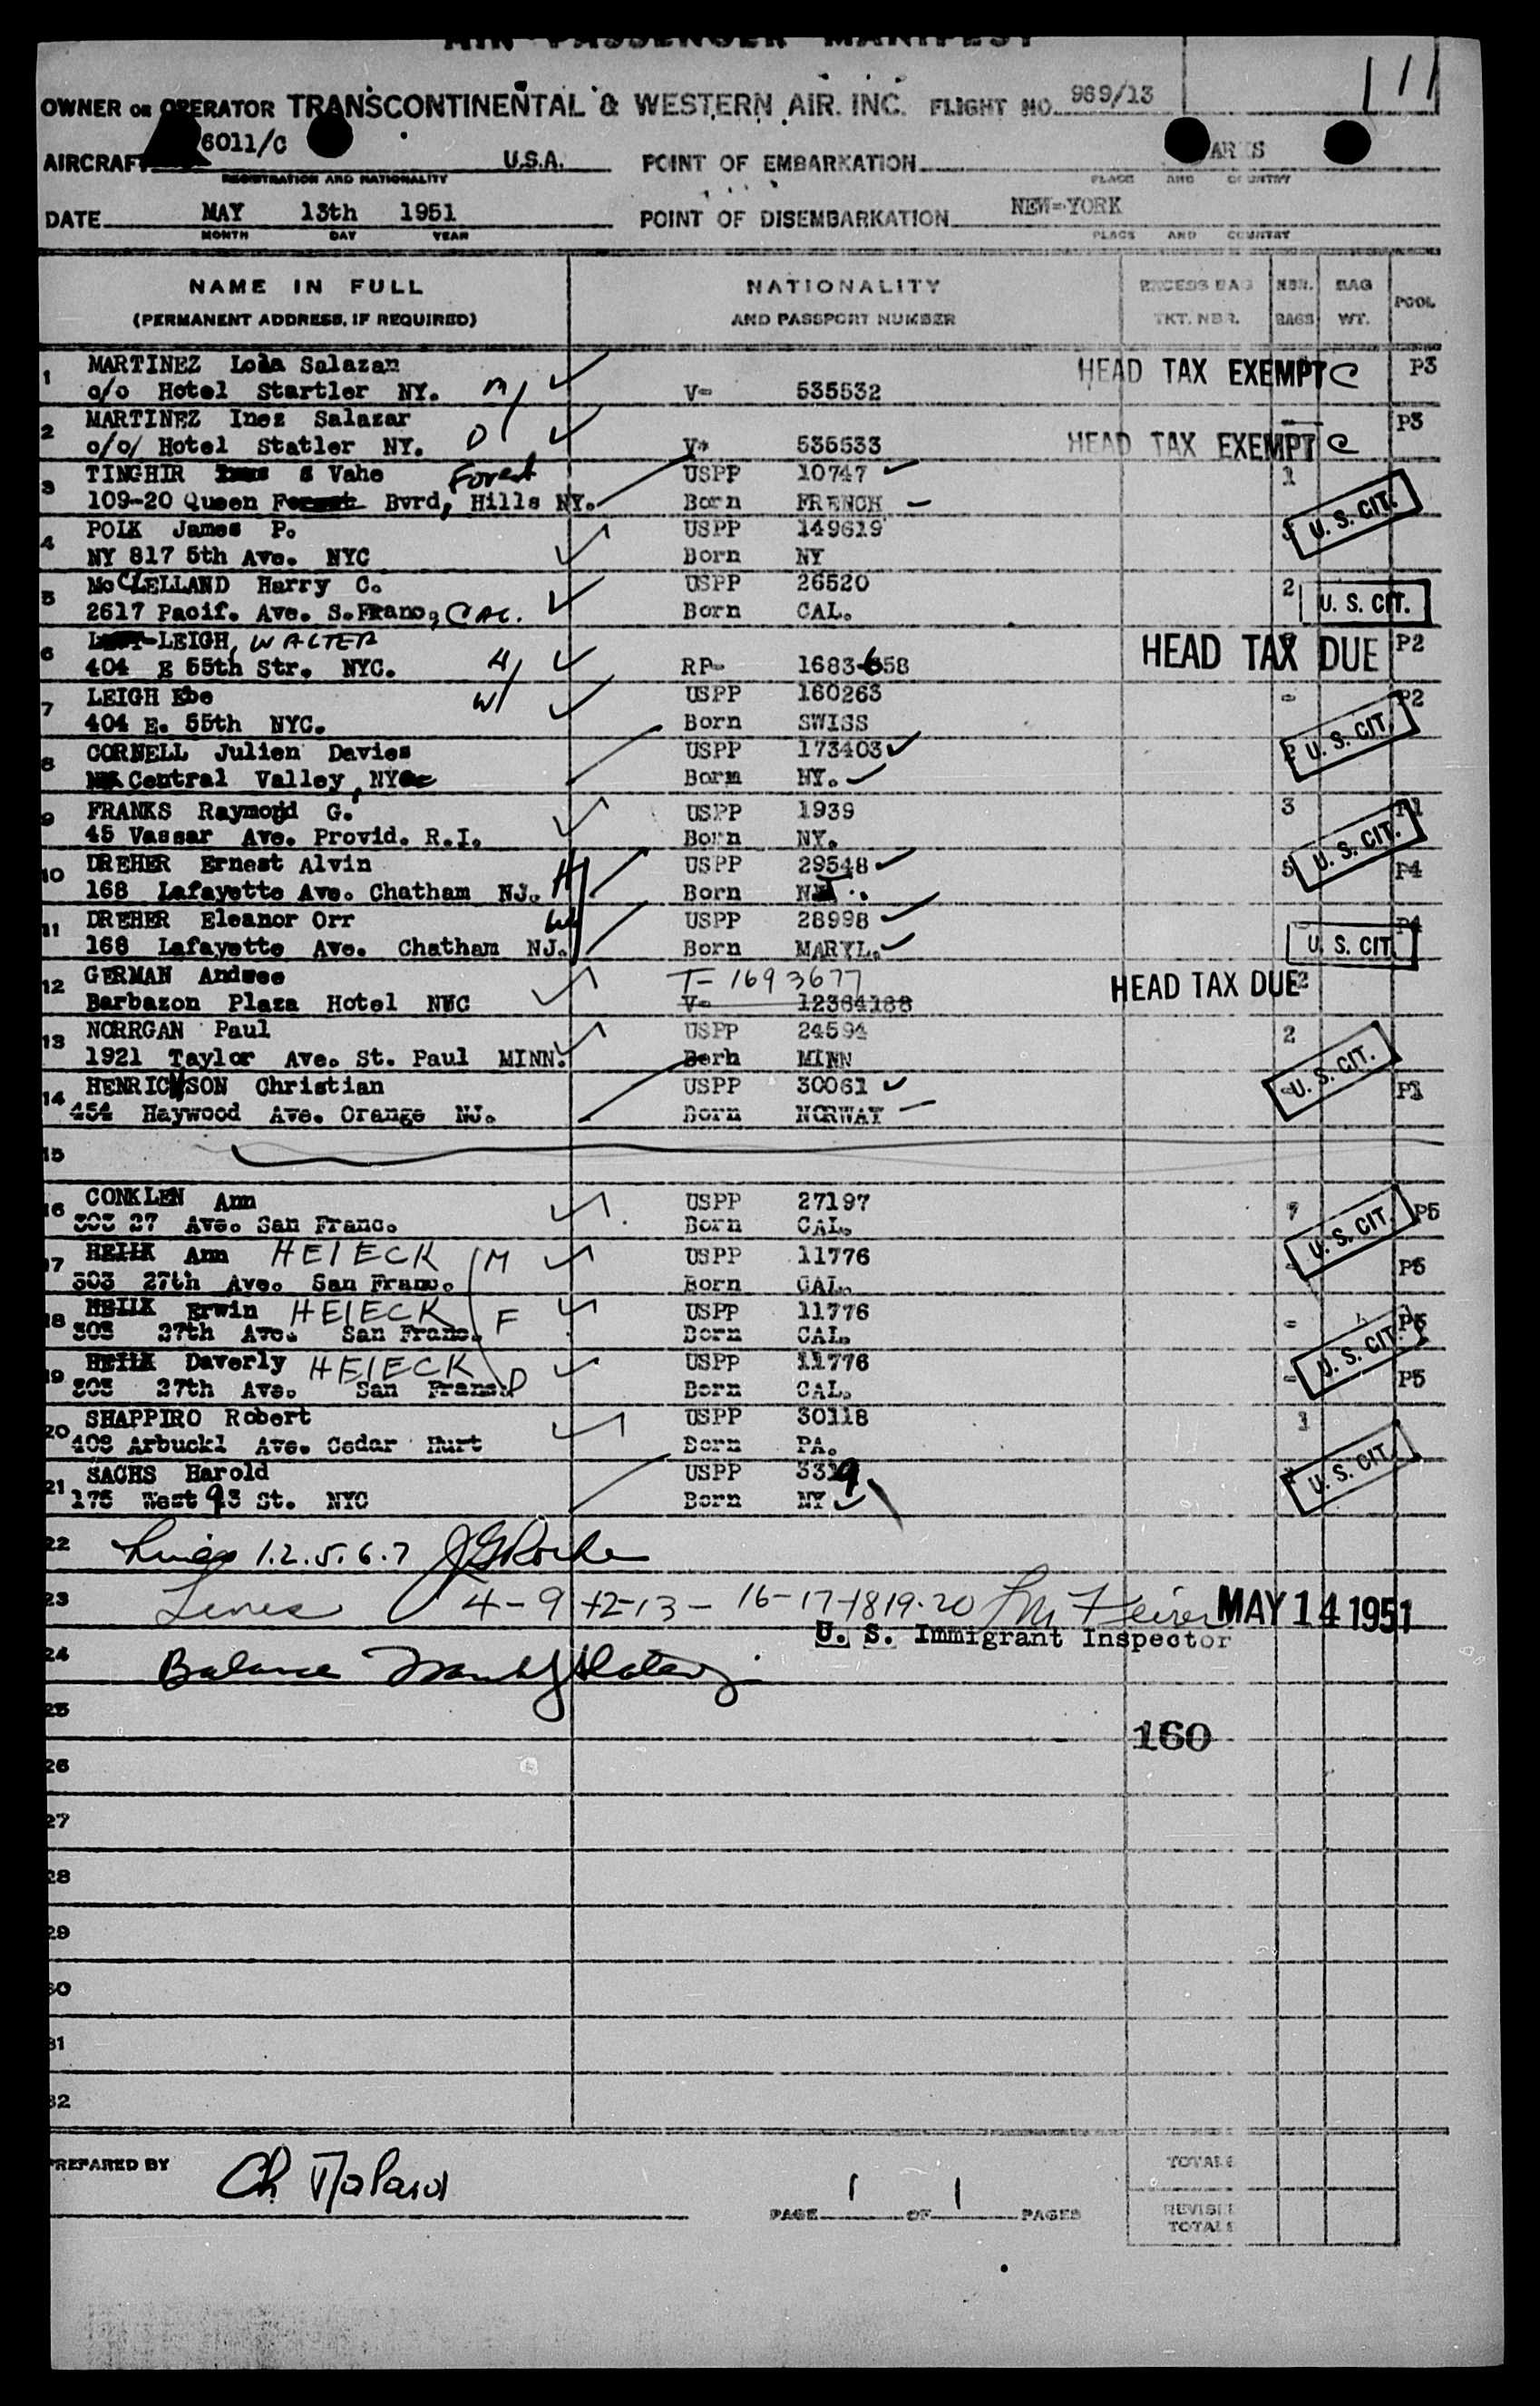 AIR PASSENGER MANIFEST
111
OWNER OR OPERATOR TRANSCONTINENTAL & WESTERN AIR. INC. FLIGHT NO. 969/13
AIRCRAFT 6011/C U.S.A. POINT OF EMBARKATION
REGISTRATION AND NATIONALITY PLACE AND COUNTRY
DATE MAY 13th 1951 POINT OF DISEMBARKATION NEW-YORK
MONTH DAY YEAR PLACE AND COUNTRY
NAME IN FULL NATIONALITY EXCESS BAG NBR. BAG POOL
(PERMANENT ADDRESS, IF REQUIRED) AND PASSPORT NUMBER TKT. NBR. BAGS WT.
1 MARTINEZ Lola Salazan HEAD TAX EXEMPT C P3
c/o Hotel Startler NY. M V- 535532
2 MARTINEZ Inez Salazar - P3
c/o/ Hotel Statler NY. D V* 535533 HEAD TAX EXEMPT C
3 TINGHIR S Vahe Forest USPP 10747 1
109-20 Queen Bvrd, Hills NY. Born FRENCH
4 POLK James P. USPP 149619 U. S. CIT.
NY 817 5th Ave. NYC Born NY
5 McCLELLAND Harry C. USPP 26520 2
2617 Pacif. Ave. S.Franc, CAL. Born CAL. U. S. CIT.
6 LEIGH, WALTER HEAD TAX DUE P2
404 E 55th Str. NYC. H RP- 1683-658
7 LEIGH Ebe W USPP 160263 - P2
404 E. 55th NYC. Born SWISS
8 CORNELL Julien Davies USPP 173403 2 U. S. CIT.
Central Valley, NY Born NY.
9 FRANKS Raymond G. USPP 1939 3 P1
45 Vassar Ave. Provid. R.I. Born NY.
10 DREHER Ernest Alvin H USPP 29548 5 U. S. CIT. P4
168 Lafayette Ave. Chatham NJ. Born
11 DREHER Eleanor Orr W USPP 28998 P4
168 Lafayette Ave. Chatham NJ. Born MARYL. U. S. CIT.
12 GERMAN Andree T-1693677 HEAD TAX DUE 2
Barbazon Plaza Hotel NUC V- 12364188
13 NORRGAN Paul USPP 24594 2
1921 Taylor Ave. St. Paul MINN. Born MINN
14 HENRICKSON Christian USPP 30061 U. S. CIT. P1
454 Haywood Ave. Orange NJ. Born NORWAY
15
16 CONKLEN Ann USPP 27197 7 P5
303 27 Ave. San Franc. Born CAL. U. S. CIT.
17 HEIIK Ann HEIECK M USPP 11776 - P5
303 27th Ave. San Franc. Born CAL.
18 HEIIK Erwin HEIECK F USPP 11776 - P5
303 27th Ave. San Franc. Born CAL. U. S. CIT.
19 HEIIK Daverly HEIECK D USPP 11776 - P5
303 27th Ave. San Franc. Born CAL.
20 SHAPPIRO Robert USPP 30118 1
408 Arbuckl Ave. Cedar Hurt Born PA.
21 SACHS Harold USPP U. S. CIT.
175 West 93 St. NYC Born NY
22 Lines 1.2.5.6.7 J G Roche
23 Lines 4-9 12-13- 16-17-18 19-20 MAY 14 1951
U. S. Immigrant Inspector
24 Balance
25
160
26
27
28
29
30
31
32
PREPARED BY Ch
PAGE 1 OF 1 PAGES
TOTALS
REVISED TOTALS